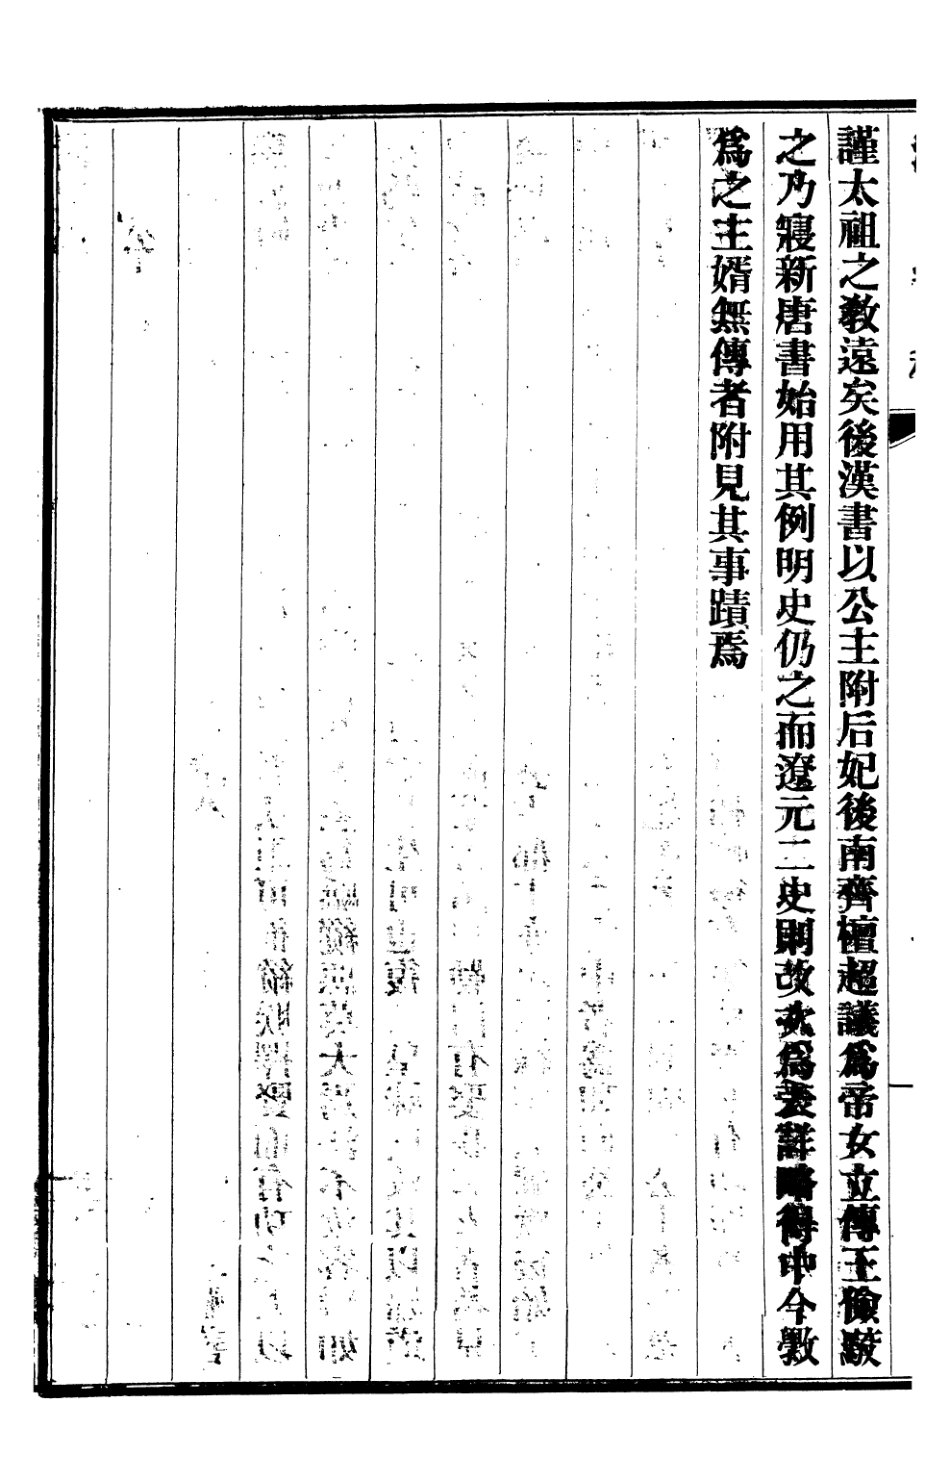 謹太祖之敎遠矣後漢書以公主附后妃後南齊檀超議爲帝女立傳王儉駁
之乃寢新唐書始用其例明史仍之而遼元二史則改爲表詳略得中今斁
爲之主婿無傳者附見其事蹟焉